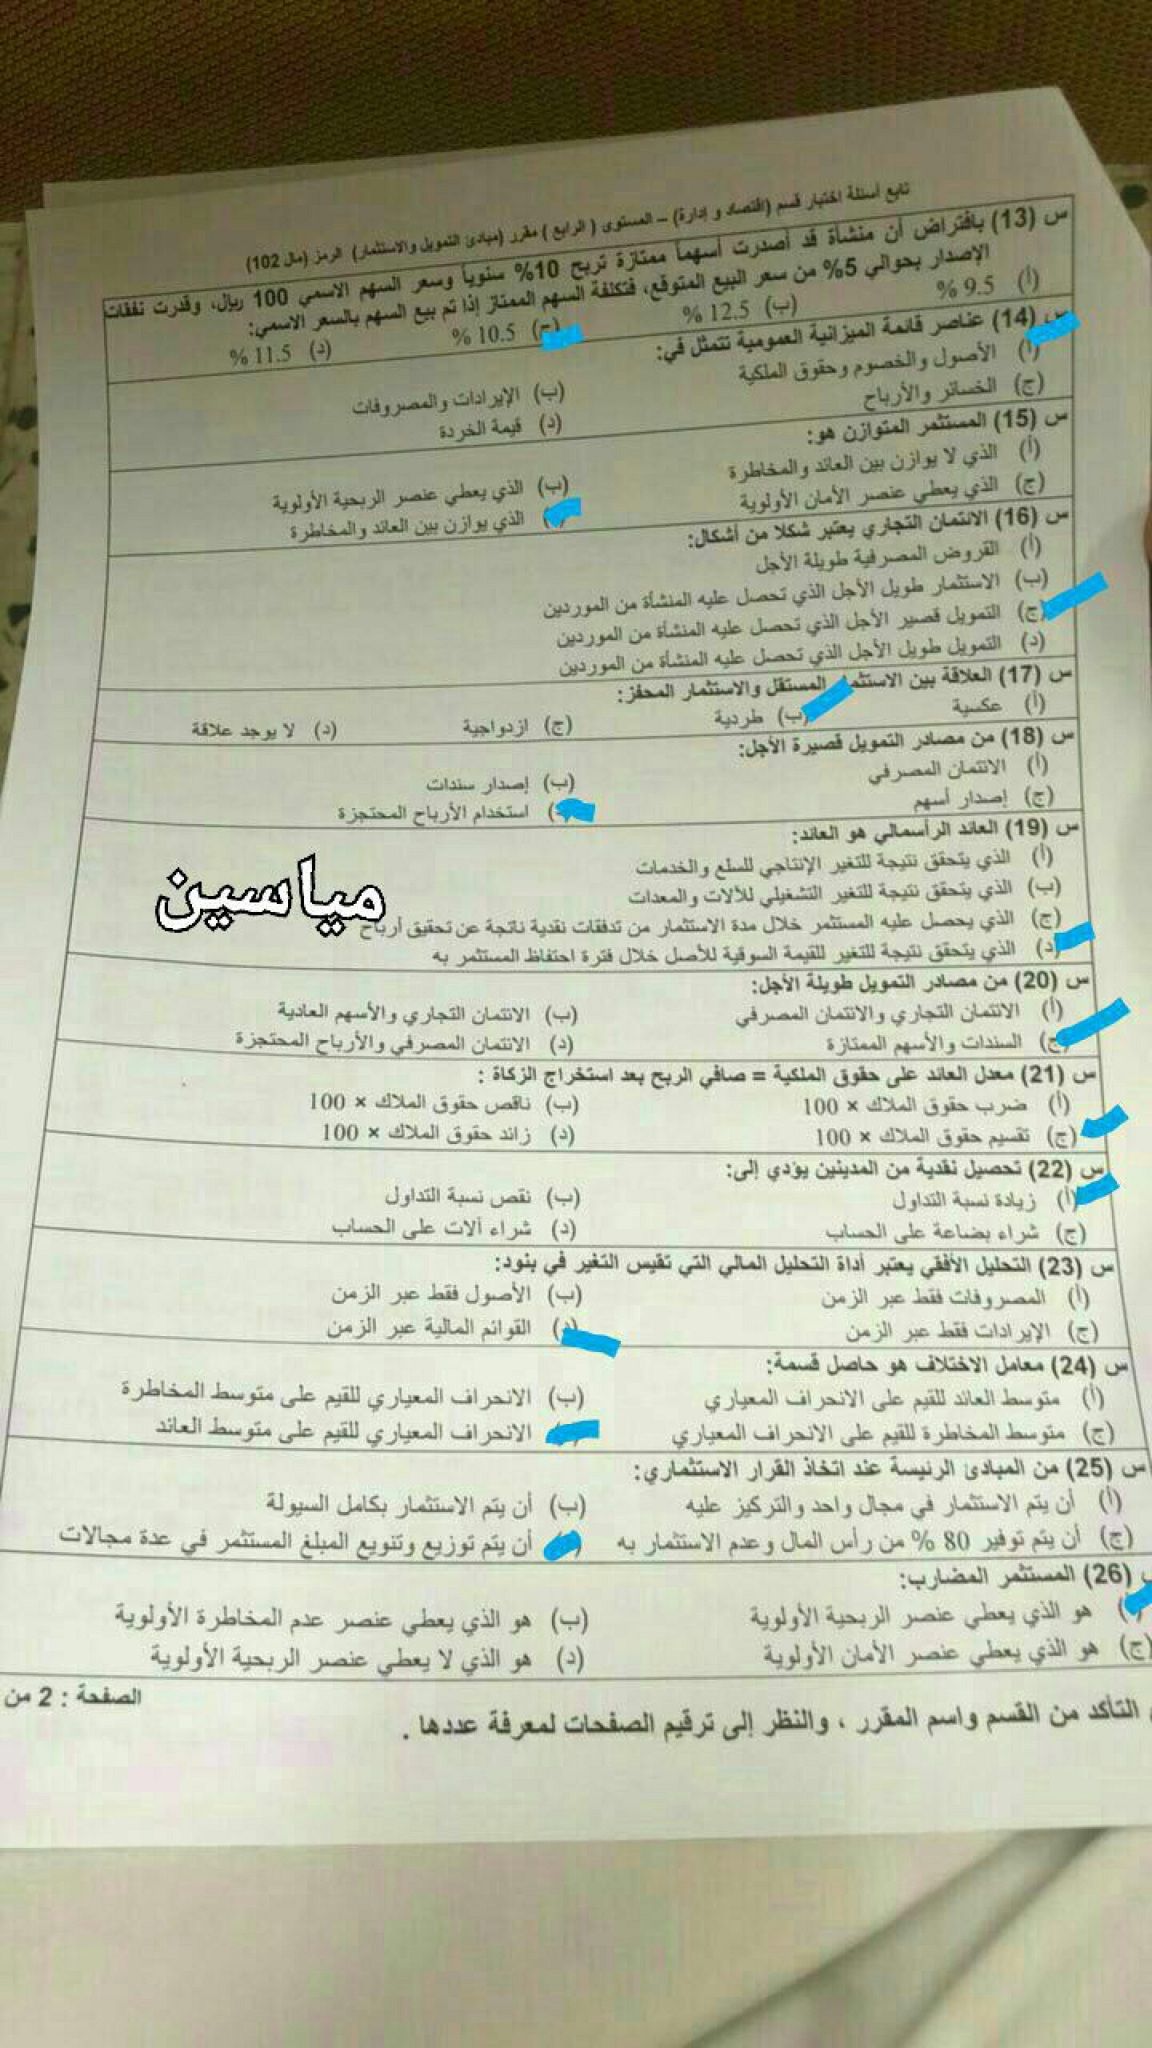 تابع أسئلة اختبار قسم (اقتصاد و إدارة) – المستوى ( الرابع ) مقرر (مبادئ التمويل والاستثمار) الرمز (مال 102)
س (13) بافتراض أن منشأة قد أصدرت أسهماً ممتازة تربح 10% سنوياً وسعر السهم الاسمي 100 ريال، وقدرت نفقات
الإصدار بحوالي 5% من سعر البيع المتوقع، فتكلفة السهم الممتاز إذا تم بيع السهم بالسعر الاسمي:
(أ) 9.5 % (ب) 12.5 % (ج) 10.5 % (د) 11.5 %
س (14) عناصر قائمة الميزانية العمومية تتمثل في:
(أ) الأصول والخصوم وحقوق الملكية (ب) الإيرادات والمصروفات
(ج) الخسائر والأرباح (د) قيمة الخردة
س (15) المستثمر المتوازن هو:
(أ) الذي لا يوازن بين العائد والمخاطرة (ب) الذي يعطي عنصر الربحية الأولوية
(ج) الذي يعطي عنصر الأمان الأولوية الذي يوازن بين العائد والمخاطرة
س (16) الائتمان التجاري يعتبر شكلا من أشكال:
(أ) القروض المصرفية طويلة الأجل
(ب) الاستثمار طويل الأجل الذي تحصل عليه المنشأة من الموردين
(ج) التمويل قصير الأجل الذي تحصل عليه المنشأة من الموردين
(د) التمويل طويل الأجل الذي تحصل عليه المنشأة من الموردين
س (17) العلاقة بين الاستثمار المستقل والاستثمار المحفز:
(أ) عكسية (ب) طردية (ج) ازدواجية (د) لا يوجد علاقة
س (18) من مصادر التمويل قصيرة الأجل:
(أ) الائتمان المصرفي (ب) إصدار سندات
(ج) إصدار أسهم (د) استخدام الأرباح المحتجزة
س (19) العائد الرأسمالي هو العائد:
(أ) الذي يتحقق نتيجة للتغير الإنتاجي للسلع والخدمات
(ب) الذي يتحقق نتيجة للتغير التشغيلي للآلات والمعدات
مياسين
(ج) الذي يحصل عليه المستثمر خلال مدة الاستثمار من تدفقات نقدية ناتجة عن تحقيق أرباح
(د) الذي يتحقق نتيجة للتغير للقيمة السوقية للأصل خلال فترة احتفاظ المستثمر به
س (20) من مصادر التمويل طويلة الأجل:
(أ) الائتمان التجاري والائتمان المصرفي (ب) الائتمان التجاري والأسهم العادية
(ج) السندات والأسهم الممتازة (د) الائتمان المصرفي والأرباح المحتجزة
س (21) معدل العائد على حقوق الملكية = صافي الربح بعد استخراج الزكاة :
(أ) ضرب حقوق الملاك × 100 (ب) ناقص حقوق الملاك × 100
(ج) تقسيم حقوق الملاك × 100 (د) زائد حقوق الملاك × 100
س (22) تحصيل نقدية من المدينين يؤدي إلى:
(أ) زيادة نسبة التداول (ب) نقص نسبة التداول
(ج) شراء بضاعة على الحساب (د) شراء آلات على الحساب
س (23) التحليل الأفقي يعتبر أداة التحليل المالي التي تقيس التغير في بنود:
(أ) المصروفات فقط عبر الزمن (ب) الأصول فقط عبر الزمن
(ج) الإيرادات فقط عبر الزمن (د) القوائم المالية عبر الزمن
س (24) معامل الاختلاف هو حاصل قسمة:
(أ) متوسط العائد للقيم على الانحراف المعياري (ب) الانحراف المعياري للقيم على متوسط المخاطرة
(ج) متوسط المخاطرة للقيم على الانحراف المعياري الانحراف المعياري للقيم على متوسط العائد
س (25) من المبادئ الرئيسة عند اتخاذ القرار الاستثماري:
(أ) أن يتم الاستثمار في مجال واحد والتركيز عليه (ب) أن يتم الاستثمار بكامل السيولة
(ج) أن يتم توفير 80 % من رأس المال وعدم الاستثمار به أن يتم توزيع وتنويع المبلغ المستثمر في عدة مجالات
(26) المستثمر المضارب:
هو الذي يعطي عنصر الربحية الأولوية (ب) هو الذي يعطي عنصر عدم المخاطرة الأولوية
(ج) هو الذي يعطي عنصر الأمان الأولوية (د) هو الذي لا يعطي عنصر الربحية الأولوية
الصفحة : 2 من
التأكد من القسم واسم المقرر ، والنظر إلى ترقيم الصفحات لمعرفة عددها .